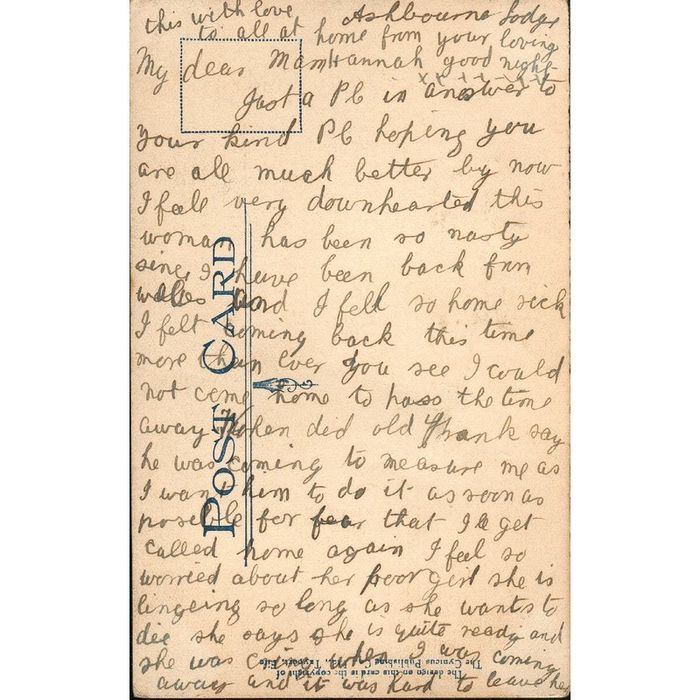 this with love Ashbourne Lodge
to all at home from your loving
My dear Mam Hannah good night
x x x x x x x
Just a PC in answer to
your kind PC hoping you
are all much better by now
I feel very downhearted this
woman has been so nasty
sinc I have been back from
wales and I fell so home sick
I felt coming back this time
more than ever you see I could
not come home to pass the time
away When did old Frank say
he was coming to measure me as
I want him to do it as soon as
posible for fear that I le get
called home again I feel so
worried about her poor girl she is
lingeing so long as she wants to
die she says she is quite ready and
she was crying when I was coming
away and it was hard to leave her
POST CARD
The design on this card is the copyright of
The Cynicus Publishing Co., Ltd., Tayport, Fife